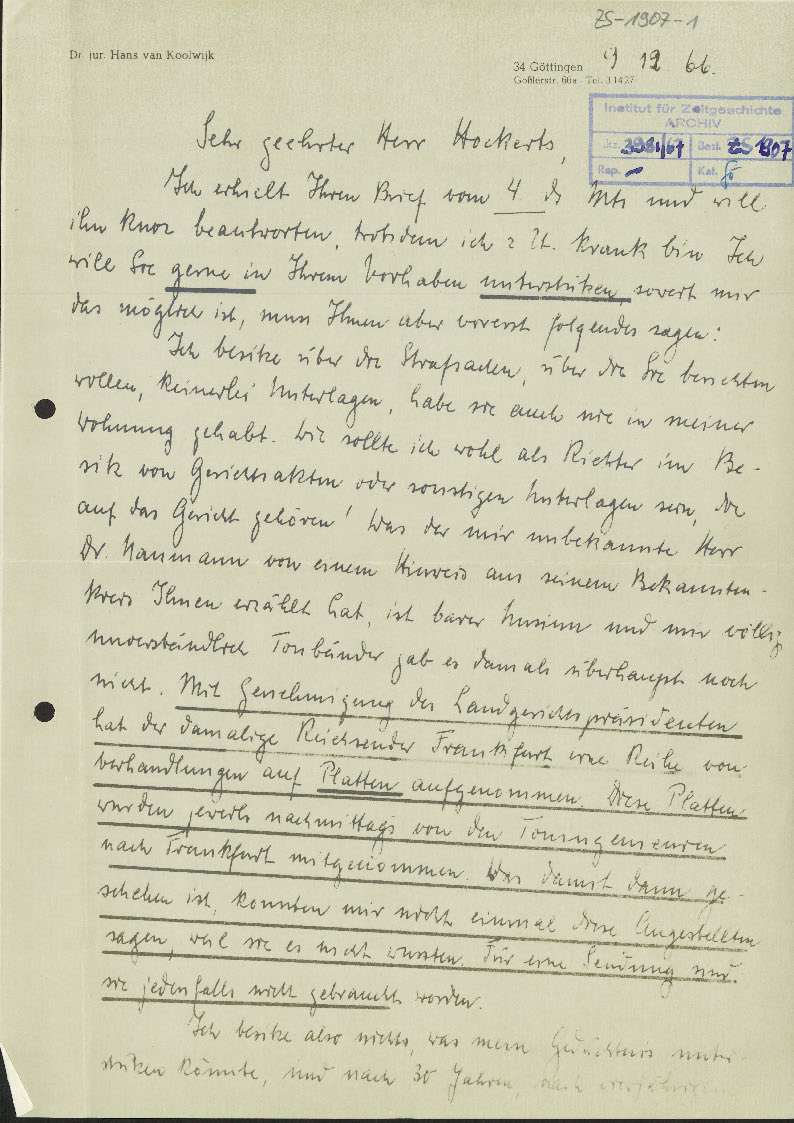 ZS-1907-1
Dr. jur. Hans van Koolwijk
34 Göttingen 9 12 66.
Goßlerstr. 66a - Tel. 31427
Institut für Zeitgeschichte
ARCHIV
Akz. 3981/67 Best. ZS 1907
Rep. — Kat.
Sehr geehrter Herr Hockerts,
Ich erhielt Ihren Brief vom 4. ds Mts und will
ihn kurz beantworten, trotzdem ich z Zt. krank bin Ich
will Sie gerne in Ihrem Vorhaben unterstützen, soweit mir
das möglich ist, muss Ihnen aber vorerst folgendes sagen:
Ich besitze über die Strafsachen, über die Sie berichten
wollen, keinerlei Unterlagen, habe sie auch nie in meiner
Wohnung gehabt. Wie sollte ich wohl als Richter im Be-
sitz von Gerichtsakten oder sonstigen Unterlagen sein, die
auf das Gericht gehören! Was der mir unbekannte Herr
Dr. Naumann von einem Hinweis aus seinem Bekannten-
kreis Ihnen erzählt hat, ist barer Unsinn und mir völlig
unverständlich Tonbänder gab es damals überhaupt noch
nicht. Mit Genehmigung des Landgerichtspräsidenten
hat der damalige Reichsender Frankfurt eine Reihe von
Verhandlungen auf Platten aufgenommen. Diese Platten
wurden jeweils nachmittags von den Toningenieuren
nach Frankfurt mitgenommen. Was damit dann ge-
schehen ist, konnten mir nicht einmal diese Angestellten
sagen, weil sie es nicht wussten. Für eine Sendung sind
sie jedenfalls nicht gebraucht worden.
Ich besitze also nichts, was mein Gedächtnis unter
stützen könnte, und nach 30 Jahren, nach